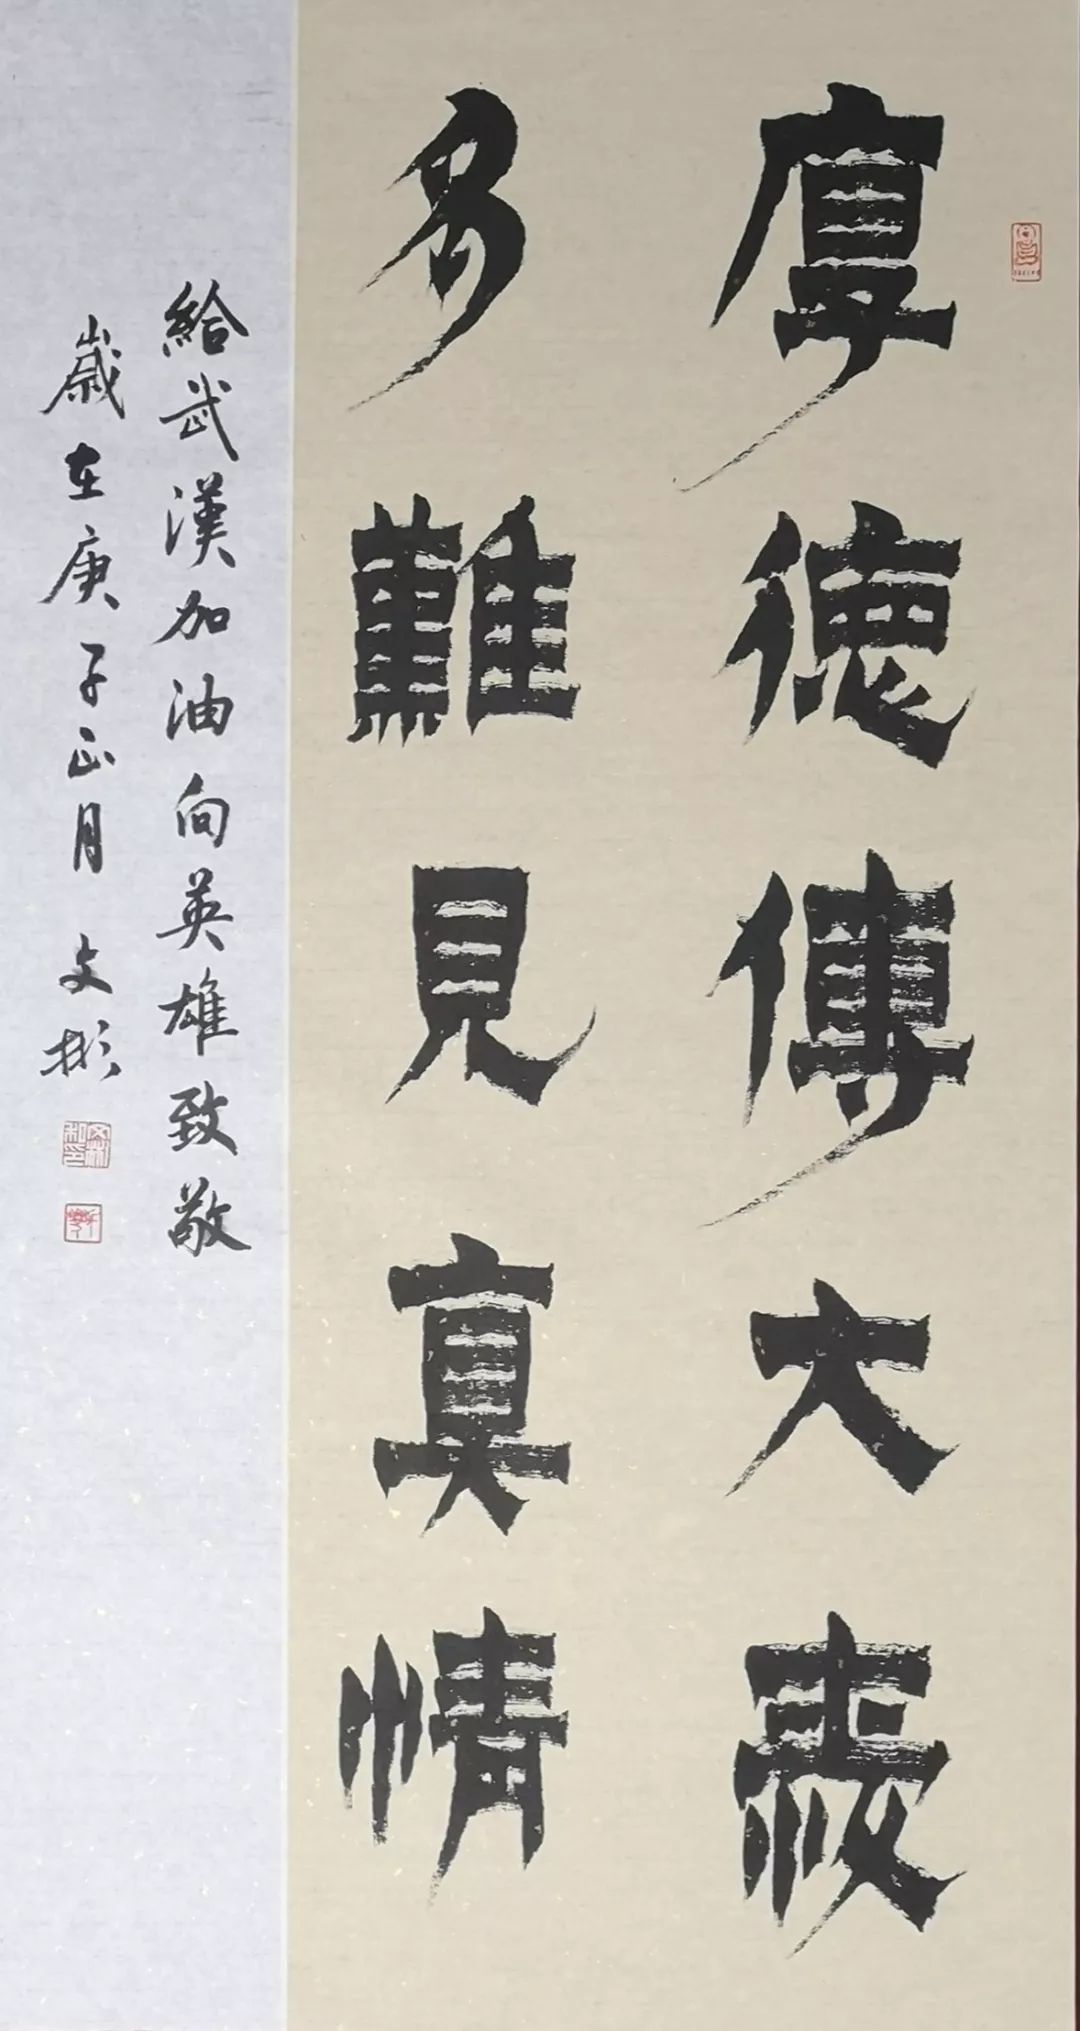 厚德傳大愛
多難見真情
給武漢加油向英雄致敬
歲在庚子正月 文彬